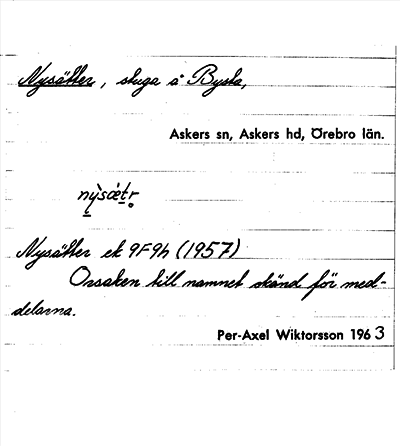 Nysätter, stuga å Bysta,
Askers sn, Askers hd, Örebro län.
nỳsæ̀tr̥
Nysätter ek 9F9h (1957)
Orsaken till namnet okänd för med-
delarna.
Per-Axel Wiktorsson 1963